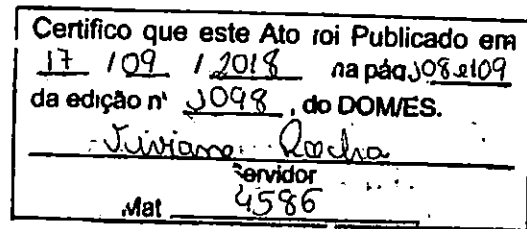 Certifico que este Ato foi Publicado em
17 / 09 / 2018 na pág 108 e 109
da edição nº 1098, do DOM/ES.
Viviane Rocha
Servidor
Mat 4586